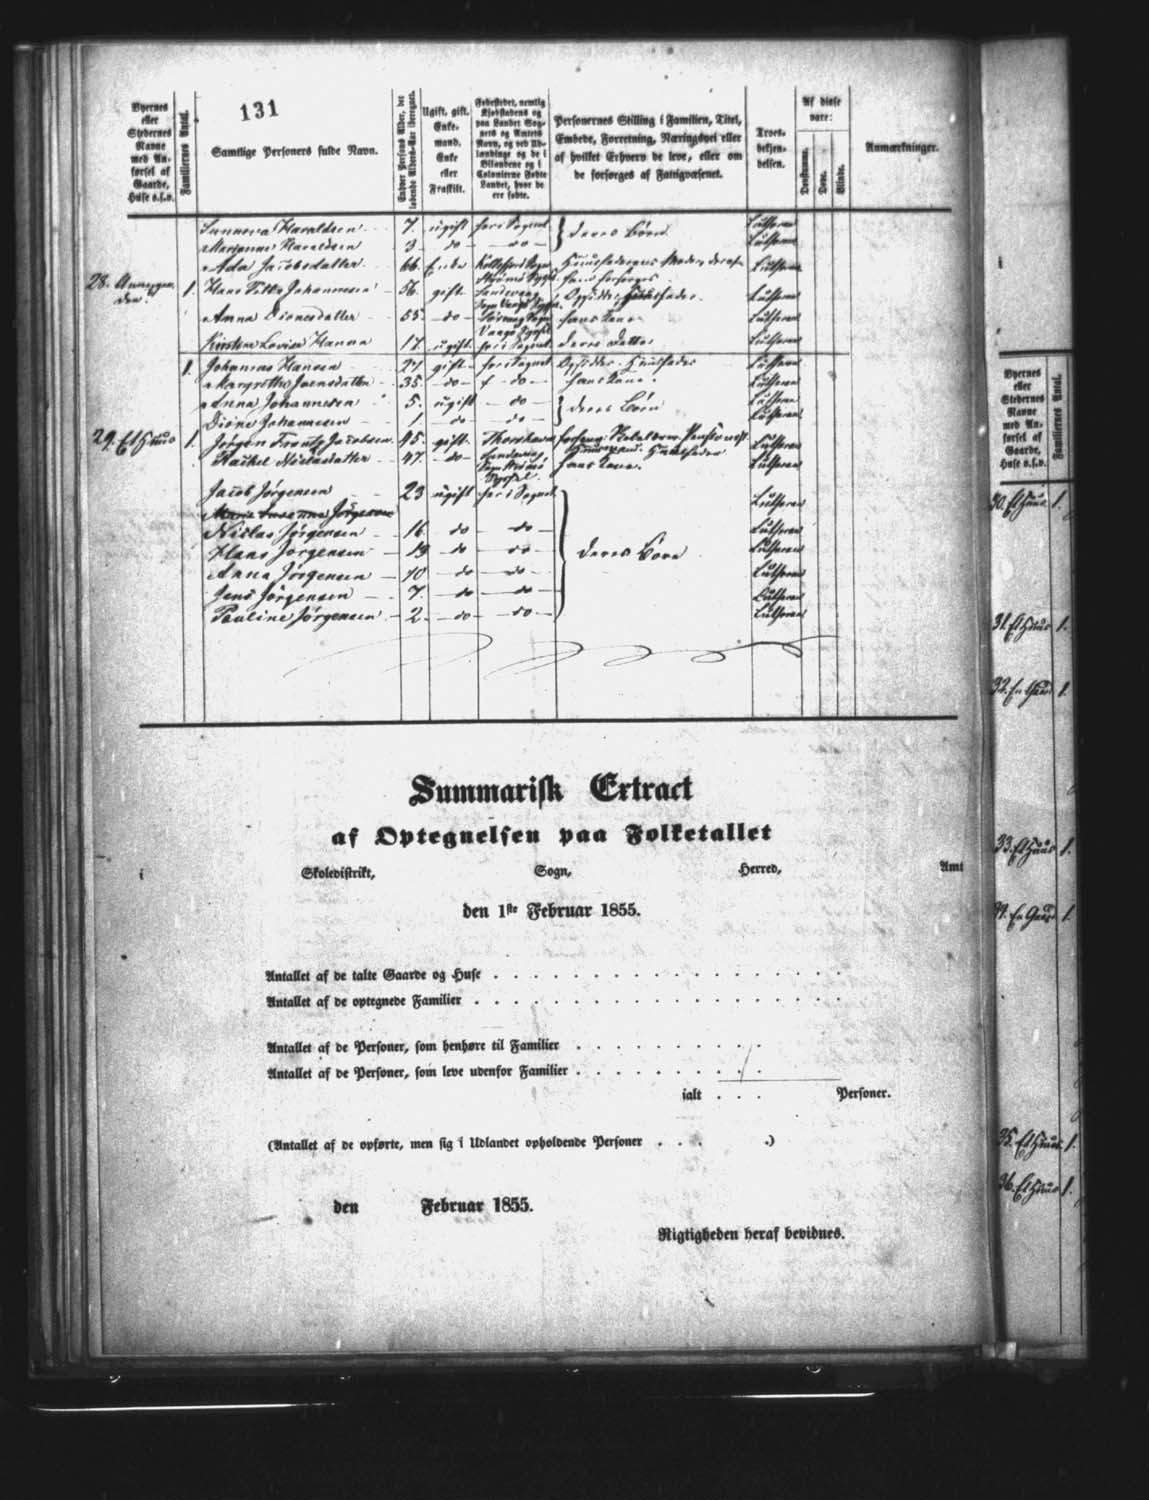 131
Byernes eller Stedernes Navne med Anførsel af Gaarde, Huse o.s.v.
Familiernes Antal.
Samtlige Personers fulde Navn.
Enhver Persons Alder, det løbende Alders-Aar iberegnet.
Ugift, gift, Enkemand, Enke eller Fraskilt.
Fødestedet, nemlig Kjøbstadens og paa Landet Sognets og Amtets Navn, og ved Udlændinge og de i Bilandene og i Colonierne Fødte Landet, hvor de ere fødte.
Personernes Stilling i Familien, Titel, Embede, Forretning, Næringsvei eller af hvilket Erhverv de leve, eller om de forsørges af Fattigvæsenet.
Troesbekjendelsen.
Af disse vare:
Døvstumme.
Døve.
Blinde.
Anmærkninger.
Sunneva Haraldsen 7. ugift her i Sognet deres Børn Luthersk
Marianne Haraldsen 3 do do Luthersk
Ada Jacobsdatter 66. Enke Luthersk
28. 1. Hans Johannesen 56. gift Luthersk
Anna Dionesdatter 55. do hans Kone Luthersk
Lovise Hanna 17. ugift her i Sognet deres Datter Luthersk
1. Johannes Hansen 27. gift her i Sognet Huusfader Luthersk
Margrethe Joensdatter 35. do do hans Kone. Luthersk
Anna Johannesen 5. ugift do deres Børn Luthersk
Dione Johannesen 1 do do Luthersk
29. Et Huus 1. Jørgen Frantz Jacobsen 45. gift Thorshavn Huusfader Luthersk
Rachel Niclasdatter 47. do hans Kone. Luthersk
Jacob Jørgensen 23 ugift her i Sognet Luthersk
Marie Susanna Jørgensen
Niclas Jørgensen 16 do do Luthersk
Hans Jørgensen 13 do do deres Børn Luthersk
Anna Jørgensen 10 do do Luthersk
Jens Jørgensen 7. do do Luthersk
Pauline Jørgensen 2 do do Luthersk
Summarisk Extract
af Optegnelsen paa Folketallet
i Skoledistrikt, Sogn, Herred, Amt
den 1ste Februar 1855.
Antallet af de talte Gaarde og Huse
Antallet af de optegnede Familier
Antallet af de Personer, som henhøre til Familier
Antallet af de Personer, som leve udenfor Familier
ialt . . . Personer.
(Antallet af de opførte, men sig i Udlandet opholdende Personer . . . .)
den Februar 1855.
Rigtigheden heraf bevidnes.
Byernes eller Stedernes Navne med Anførsel af Gaarde, Huse o.s.v.
Familiernes Antal.
30. Et Huus 1.
31. Et Huus 1.
32. En Gaard 1.
33. Et Huus 1.
34. En Gaard 1.
35. Et Huus 1.
36. Et Huus 1.